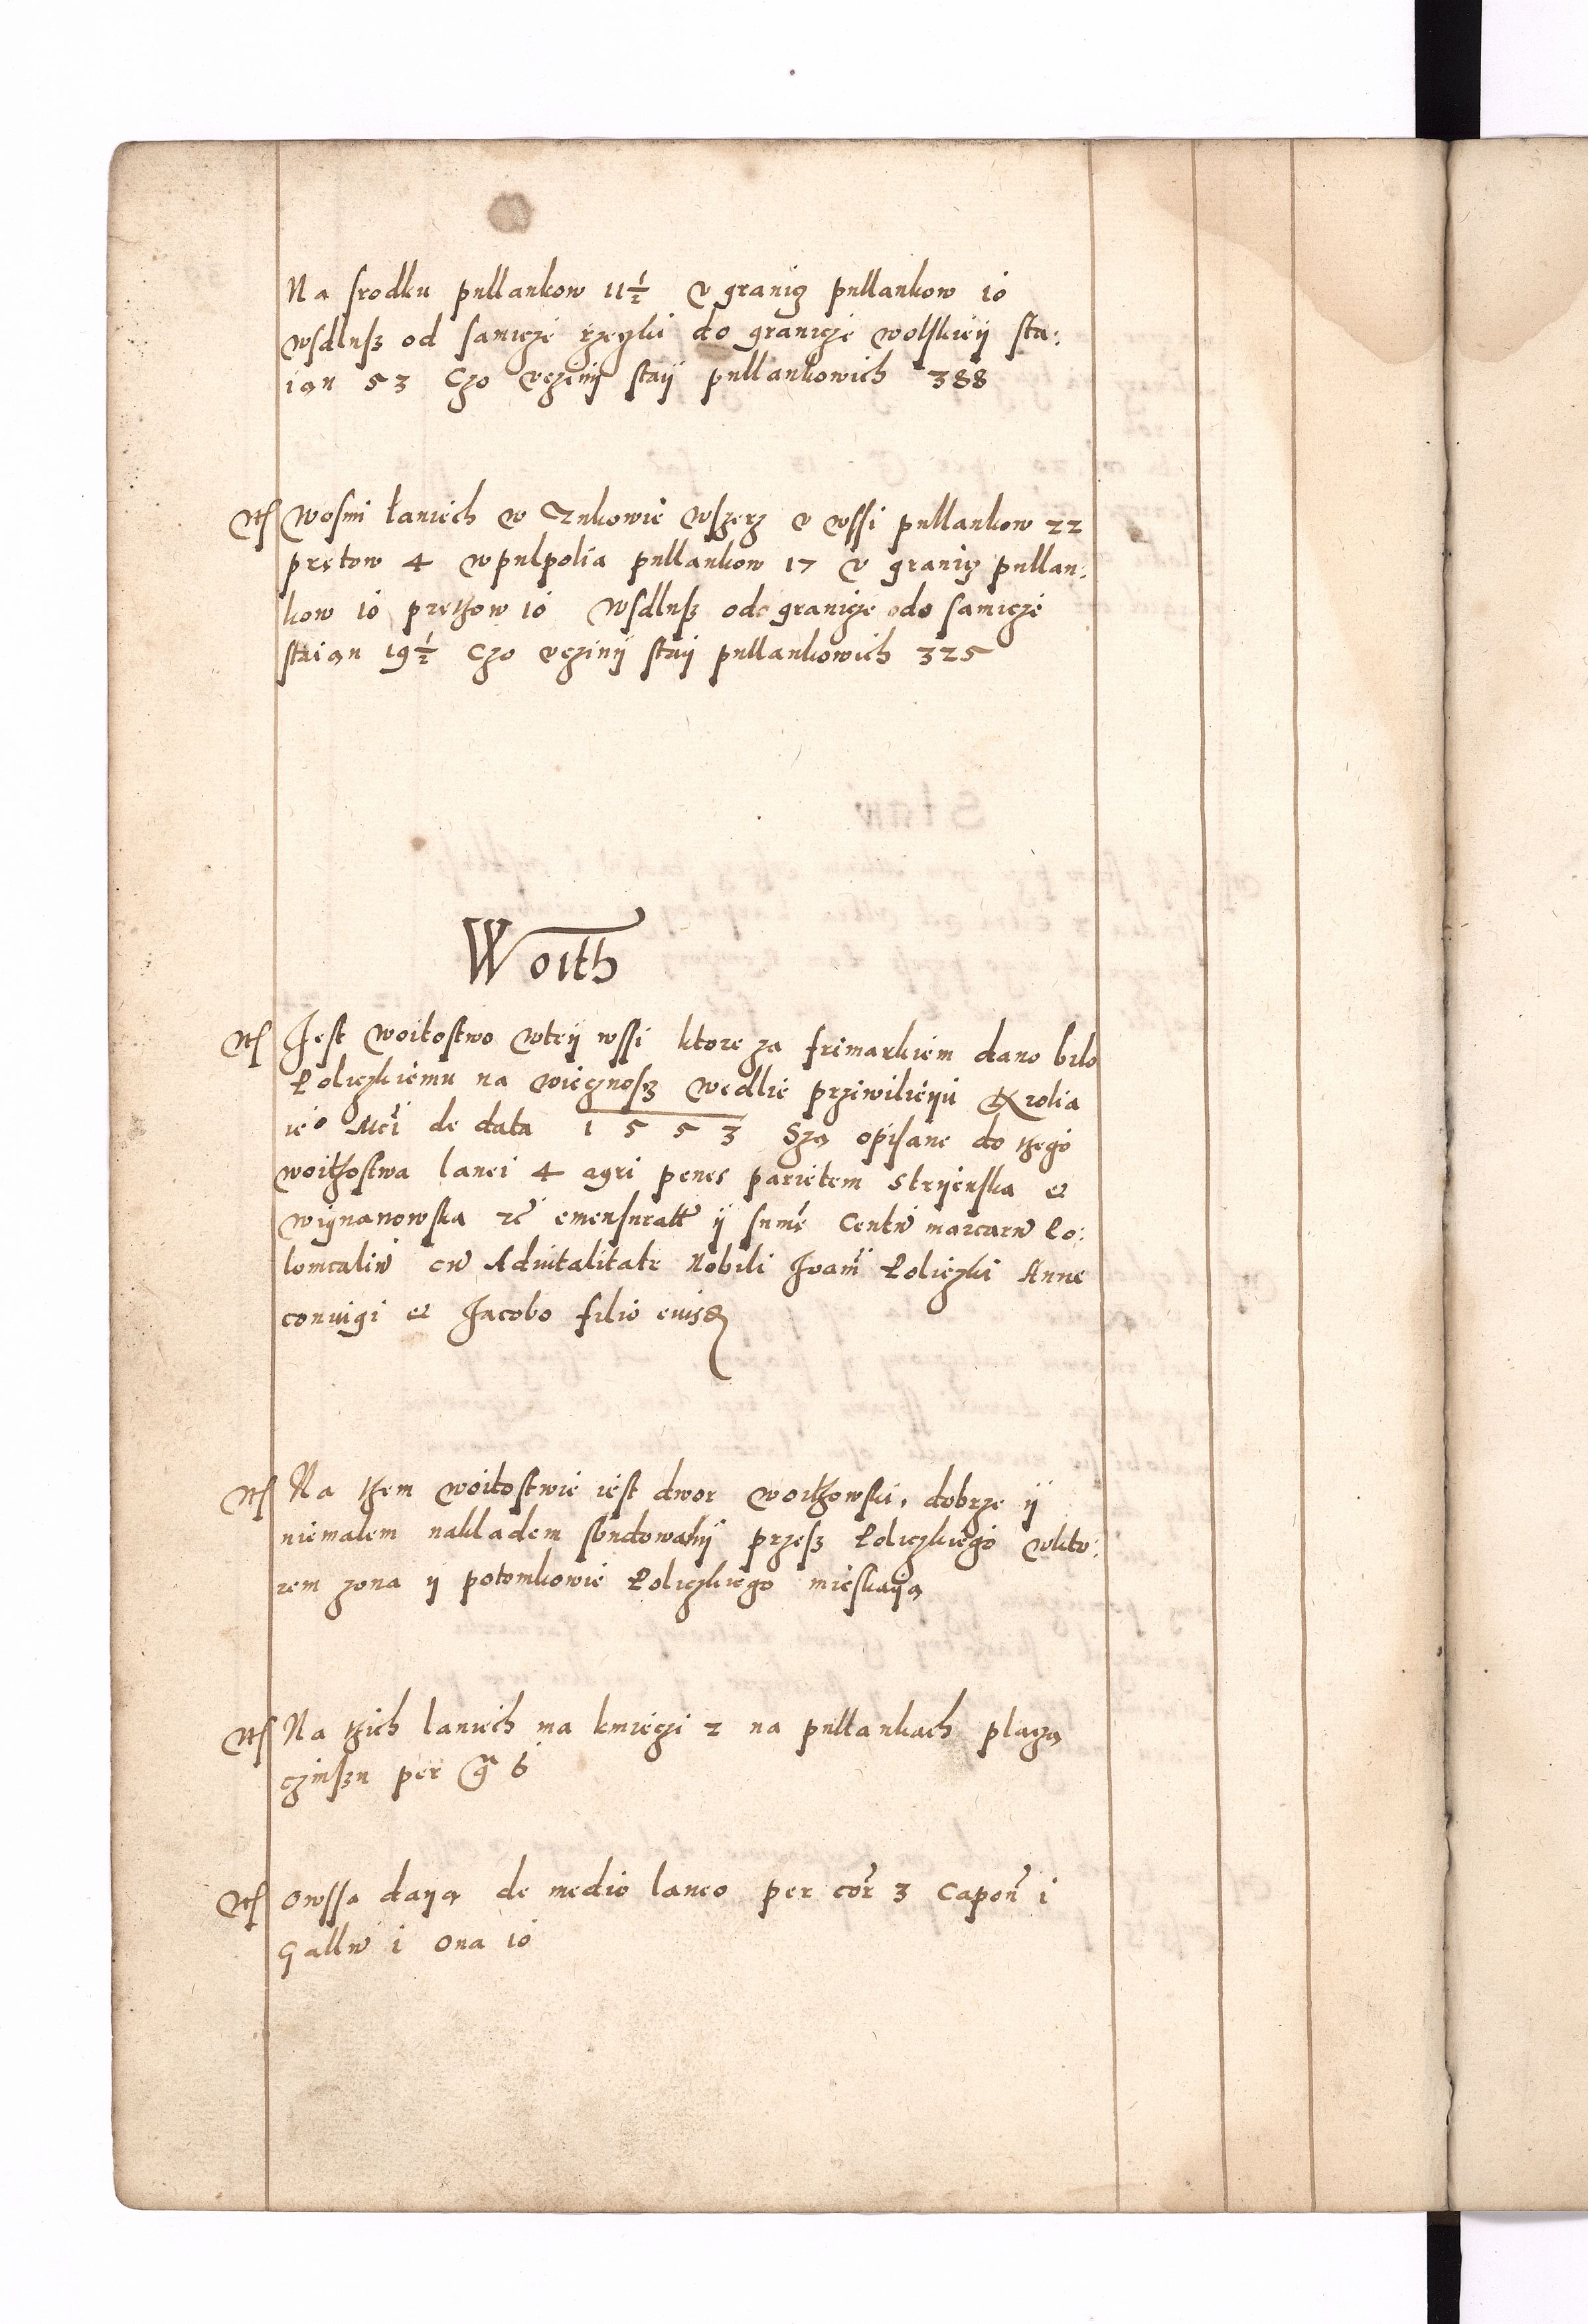 Na srodku pullankow 11½ v granicz pullankow 10
wsdlusz od samicze rzeczki do granicze wolskieÿ sta:
ian 53 Czo vcziny staÿ pullankowich 388
Itē wosmi łaniech w Czukowie wszerz v wssi pullankow 22
prętow 4 wpulpolia pullankow 17 v granicz pullan:
kow 10 pretzow 10 wsdlusz odo granicze odo samicze
staian 19½ Czo vcziniÿ staÿ pullankowich 325
Woith
Itē Jest woitostwo wteÿ wssi ktore za frimarkiem dano bilo
Łoliczkiemu na wiecznosz wedlie prziwilieÿu Krolia
ie° Mči de data 1553 Sza opisane do tzego
woitzostwa lanei 4 agri penes parietem Strÿenska &
wignanowska emensurať ÿ sumē Centū marcarū Co:
lomcaliū cū Aduitalitate Nobili Joanī Łoliczki Anne
coniugi & Jacobo filio eiusd
Itē Na tzem woitostwie iest dwor woitzowski, dobrze ÿ
niemalem nakladem sbudowanÿ przesz Łoliczkiego wkto:
rem zona ÿ potomkowie Łoliczkiego mieskaÿą
Itē Na tzich laniech ma kmieczi 2 na pullankach placzą
czinszu per gr 6
Itē Owssa daÿą de medio laneo per cor 3 Capon̄ 1
Gallū 1 Oua 10